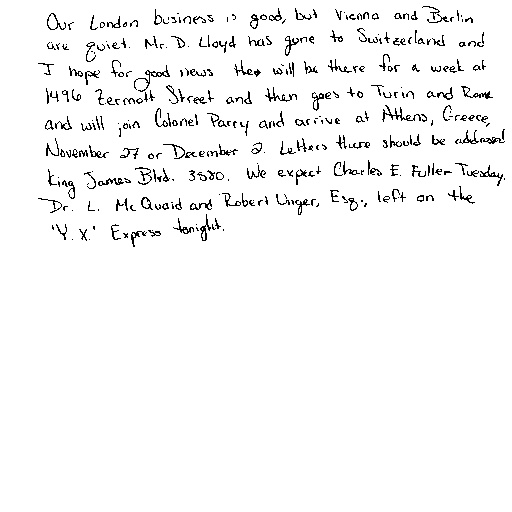 Our London business is good, but Vienna and Berlin
are quiet. Mr. D. Lloyd has gone to Switzerland and
I hope for good news. He will be there for a week at
1496 Zermott Street and then goes to Turin and Rome
and will join Colonel Parry and arrive at Athens, Greece,
November 27 or December 2. Letters there should be addressed
King James Blvd. 3580. We expect Charles E. Fuller Tuesday.
Dr. L. McQuaid and Robert Unger, Esq., left on the
'Y.X.' Express tonight.